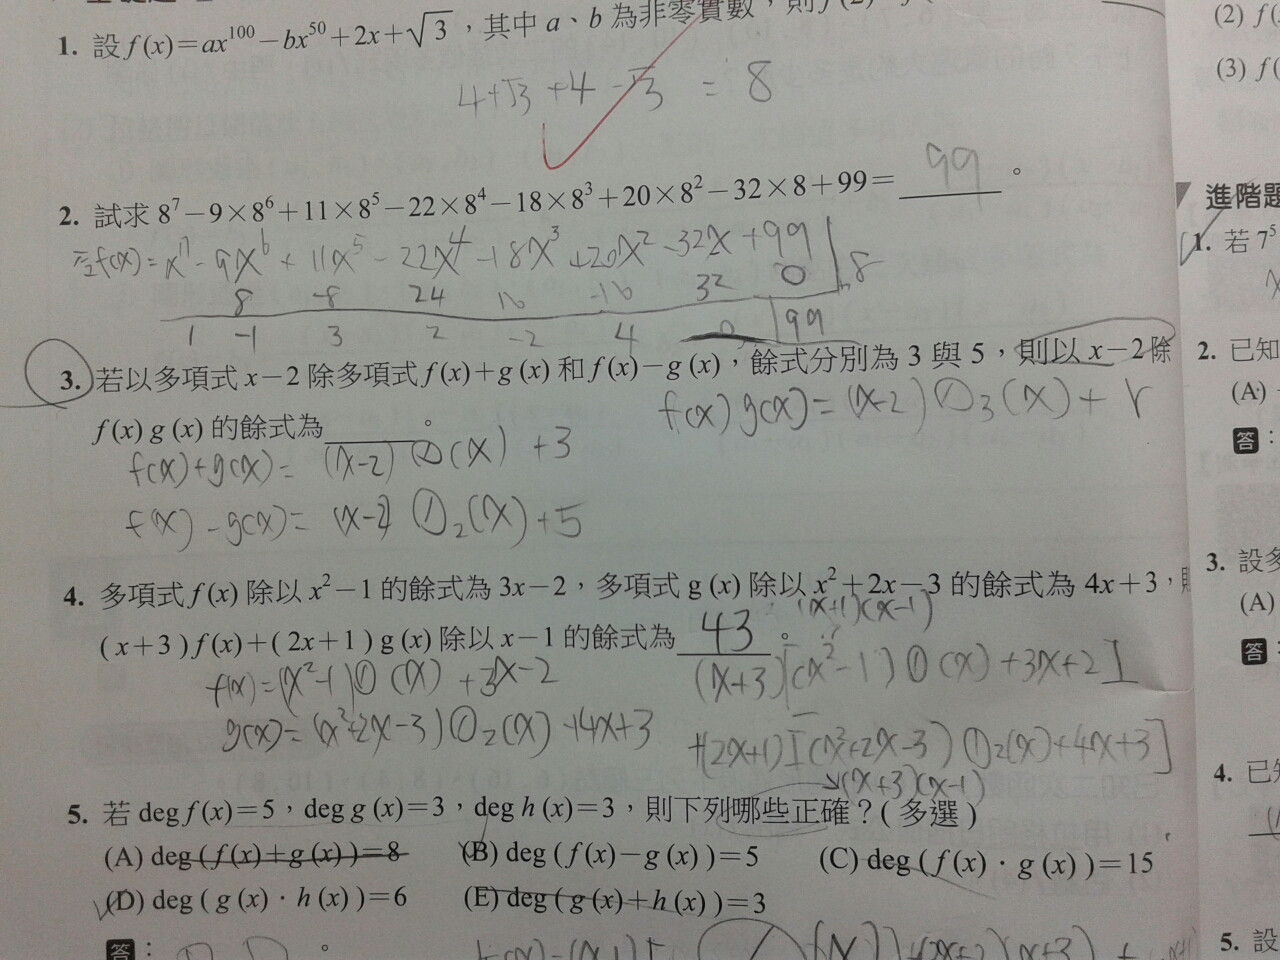 1. 設 f(x)=ax¹⁰⁰−bx⁵⁰+2x+√3，其中 a、b 為非零實數，則
4+√3+4−√3 = 8
2. 試求 8⁷−9×8⁶+11×8⁵−22×8⁴−18×8³+20×8²−32×8+99= 99 。
f(x)=x⁷−9x⁶+11x⁵−22x⁴−18x³+20x²−32x+99
8 −8 24 16 −16 32 0 8
1 −1 3 2 −2 4 0 99
3. 若以多項式 x−2 除多項式 f(x)+g(x) 和 f(x)−g(x)，餘式分別為 3 與 5，則以 x−2 除
f(x)g(x)=(x−2)Q₃(x)+r
f(x)g(x) 的餘式為 。
f(x)+g(x)= (x−2)Q(x)+3
f(x)−g(x)= (x−2)Q₂(x)+5
4. 多項式 f(x) 除以 x²−1 的餘式為 3x−2，多項式 g(x) 除以 x²+2x−3 的餘式為 4x+3，則
(x+1)(x−1)
(x+3)f(x)+(2x+1)g(x) 除以 x−1 的餘式為 43 。
f(x)=(x²−1)Q(x)+3x−2
(x+3)[(x²−1)Q(x)+3x+2]
g(x)=(x²+2x−3)Q₂(x)+4x+3
+(2x+1)[(x²+2x−3)Q₂(x)+4x+3]
→(x+3)(x−1)
5. 若 deg f(x)=5，deg g(x)=3，deg h(x)=3，則下列哪些正確？(多選)
(A) deg(f(x)+g(x))=8 (B) deg(f(x)−g(x))=5 (C) deg(f(x)·g(x))=15
(D) deg(g(x)·h(x))=6 (E) deg(g(x)+h(x))=3
答： 。
(2) f(
(3) f(
進階題
1. 若 7⁵
2. 已知
(A)
答：
3. 設多
(A)
答：
4. 已知
5. 設